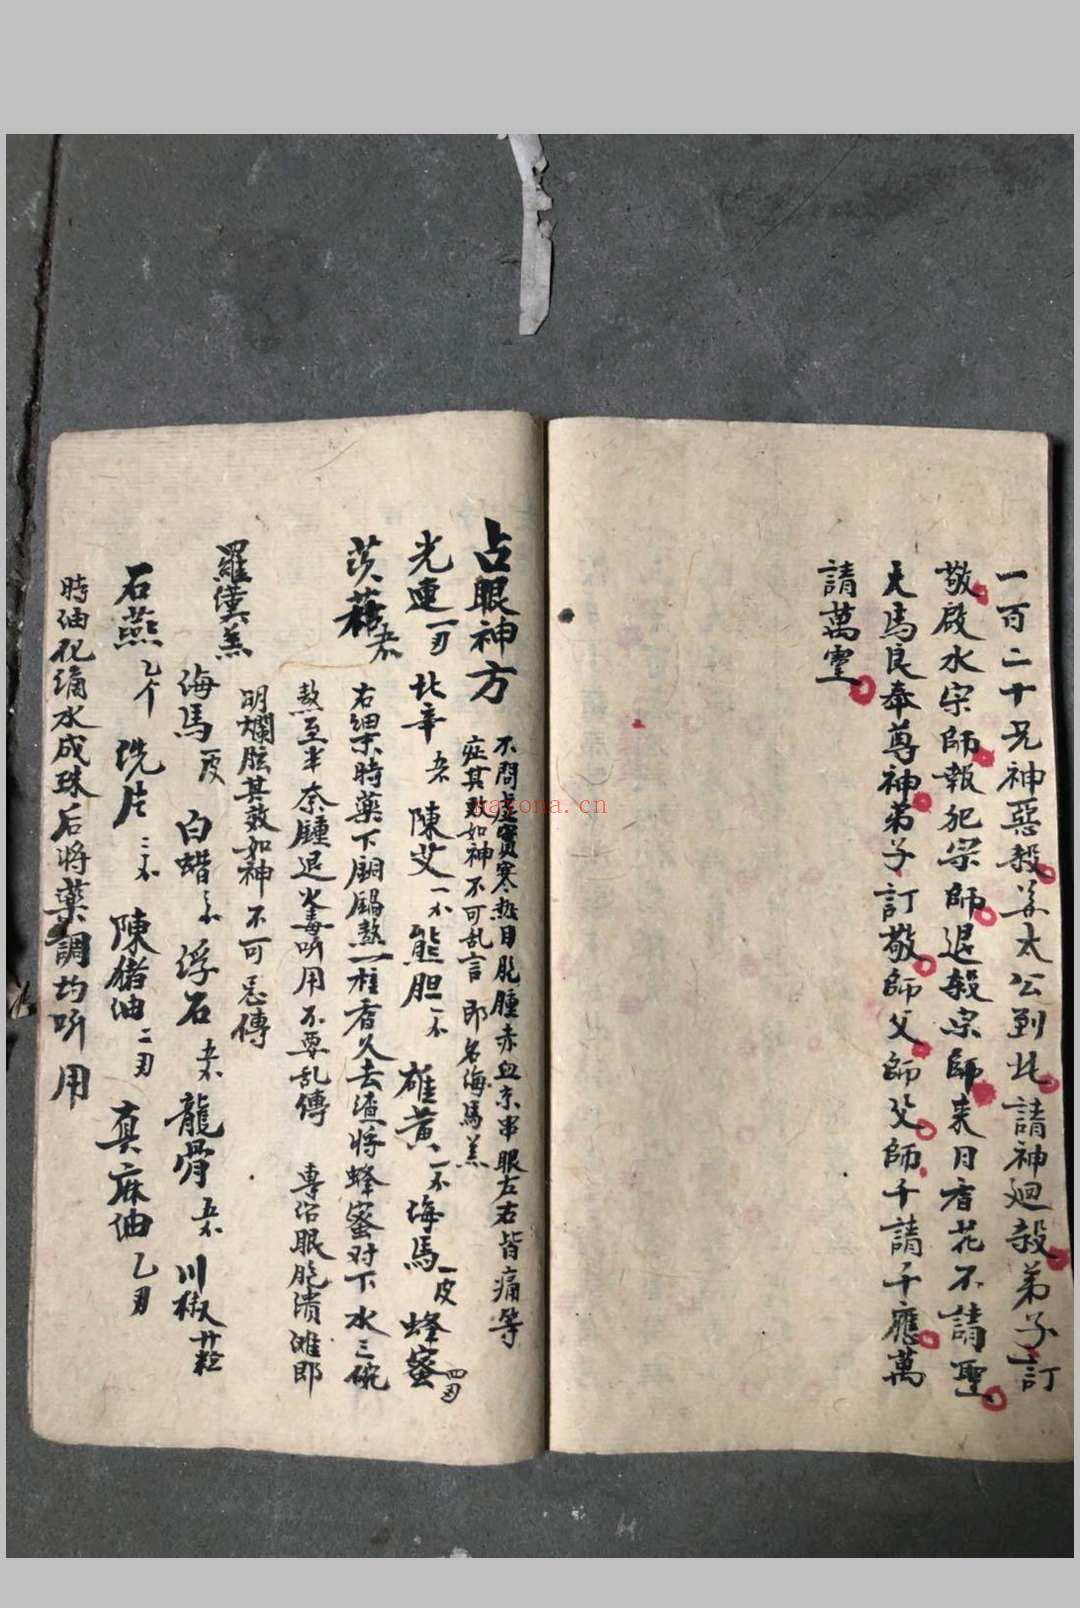 一百二十兄神惡殺姜太公到此請神廻殺弟子訂
敬啟水宗師報犯宗師退殺宗師来日香花不請聖
天馬良奉尊神弟子訂敬師父師父師千請千應萬
請萬灵
占眼神方
不問虛實寒热目胞腫赤血京串眼左右皆痛等
症其效如神不可乱言 即名海馬羔
光連一刃 北辛 陳艾 熊胆 雄黄 海馬一皮 蜂蜜四刃
茨菇
右細末時藥下銅鍋熬一柱香久去渣將蜂蜜对下水三碗
熬至半奈腫退火毒听用不要乱傳 專治眼胞潰濰即
明爛胘其效如神不可忘傳
羅漢羔
海馬一皮 白蜡 浮石 龍骨 川椒廿粒
石燕乙个 洗片 陳猪油二刃 真麻油乙刃
時油化滴水成珠后将藥調均听用
nayona.cn